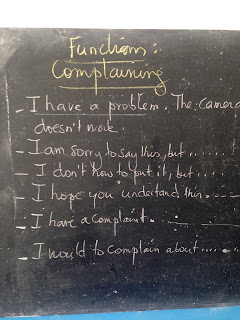 Functions:
Complaining
- I have a problem. The camera
doesn't work.
- I am sorry to say this, but......
- I don't how to put it, but....
- I hope you understand this....
- I have a complaint...
- I would to complain about......